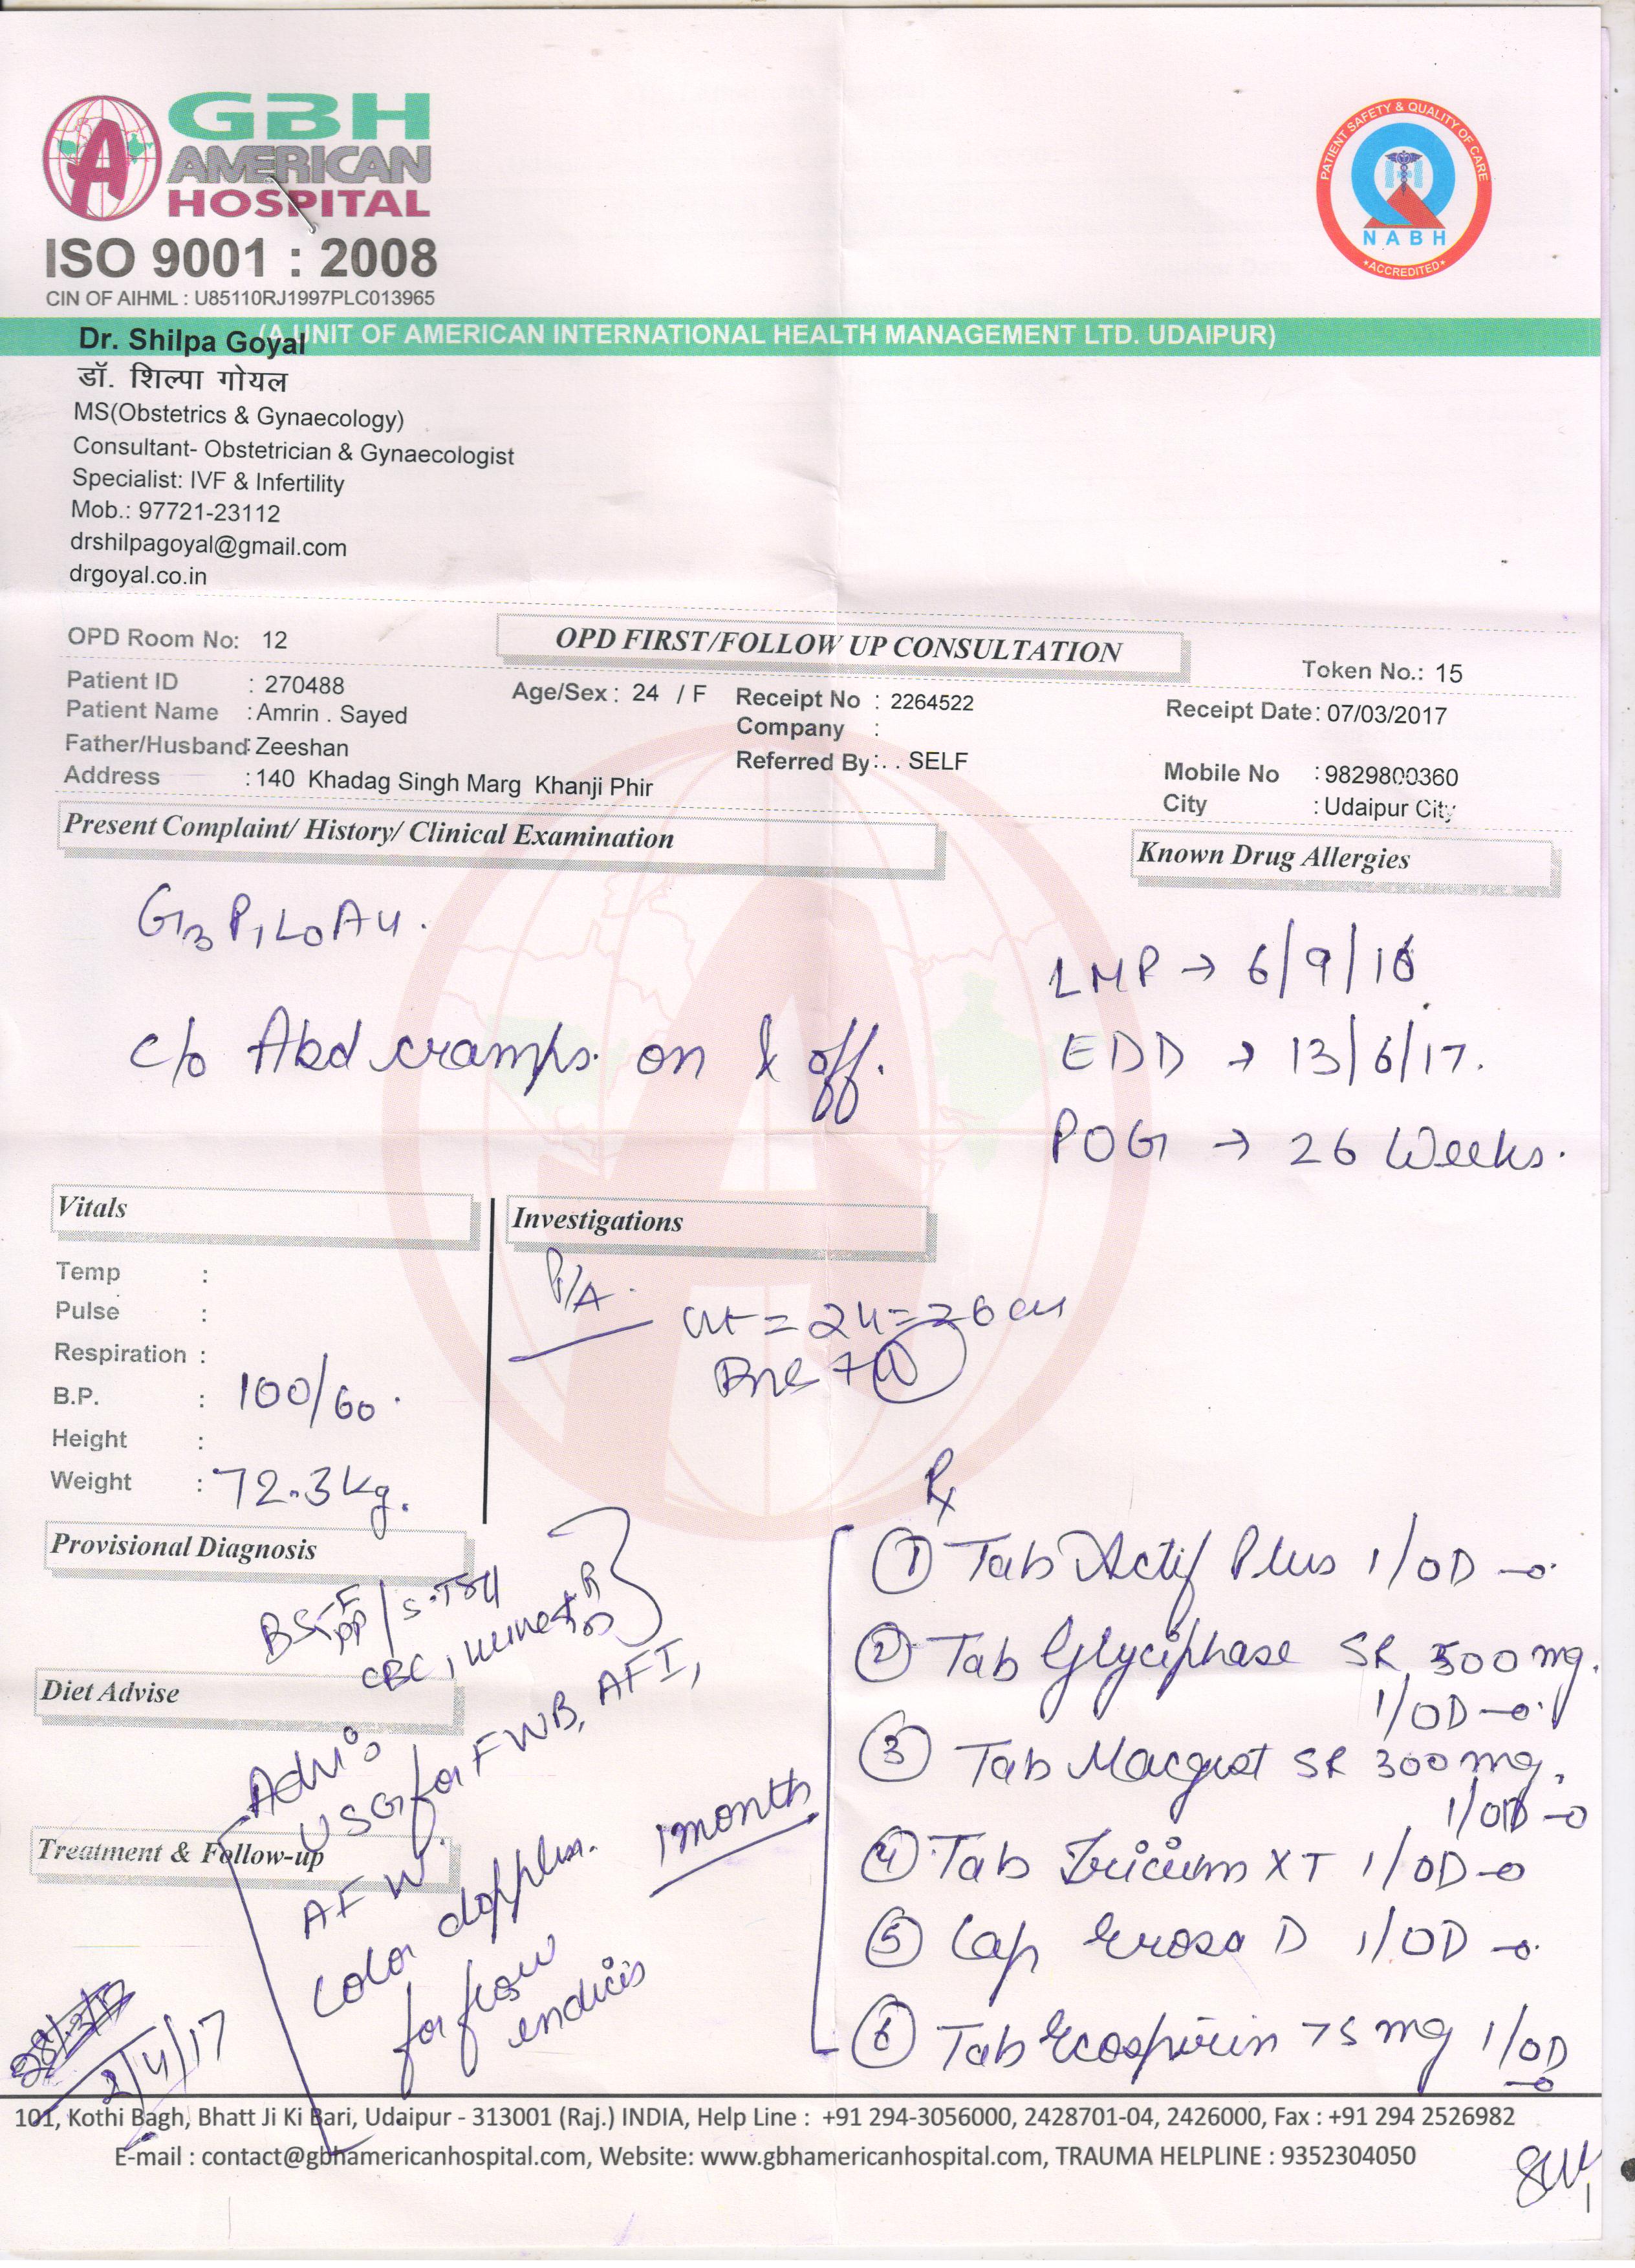 GBH
AMERICAN
HOSPITAL
ISO 9001 : 2008
CIN OF AIHML : U85110RJ1997PLC013965
PATIENT SAFETY & QUALITY OF CARE
NABH
ACCREDITED
(A UNIT OF AMERICAN INTERNATIONAL HEALTH MANAGEMENT LTD. UDAIPUR)
Dr. Shilpa Goyal
डॉ. शिल्पा गोयल
MS(Obstetrics & Gynaecology)
Consultant- Obstetrician & Gynaecologist
Specialist: IVF & Infertility
Mob.: 97721-23112
drshilpagoyal@gmail.com
drgoyal.co.in
OPD Room No: 12
OPD FIRST/FOLLOW UP CONSULTATION
Token No.: 15
Patient ID : 270488
Age/Sex : 24 / F
Receipt No : 2264522
Receipt Date: 07/03/2017
Patient Name : Amrin . Sayed
Company :
Father/Husband: Zeeshan
Referred By: . . SELF
Mobile No : 9829800360
Address : 140 Khadag Singh Marg Khanji Phir
City : Udaipur City
Present Complaint/ History/ Clinical Examination
Known Drug Allergies
G3 P1 L0 A4.
LMP → 6/9/16
c/o Abd cramps on & off.
EDD → 13/6/17.
POG → 26 Weeks.
Vitals
Investigations
Temp :
Pulse :
Respiration :
B.P. : 100/60.
Height :
Weight : 72.3 kg.
P/A.
= 24=26 cm
Provisional Diagnosis
BS-F/PP / S.TSH
CBC, Urine R
Diet Advise
Advi:
USG for FWB, AFI,
AFW.
Color doppler.
for flow
indicis
1 month
Treatment & Follow-up
28/3/17
2/4/17
Rx
① Tab Actif Plus 1/OD
② Tab Glyciphase SR 500 mg.
1/OD
③ Tab Macgest SR 300 mg.
1/OD
④ Tab XT 1/OD
⑤ Cap D 1/OD
⑥ Tab Ecospirin 75 mg 1/OD
101, Kothi Bagh, Bhatt Ji Ki Bari, Udaipur - 313001 (Raj.) INDIA, Help Line : +91 294-3056000, 2428701-04, 2426000, Fax : +91 294 2526982
E-mail : contact@gbhamericanhospital.com, Website: www.gbhamericanhospital.com, TRAUMA HELPLINE : 9352304050